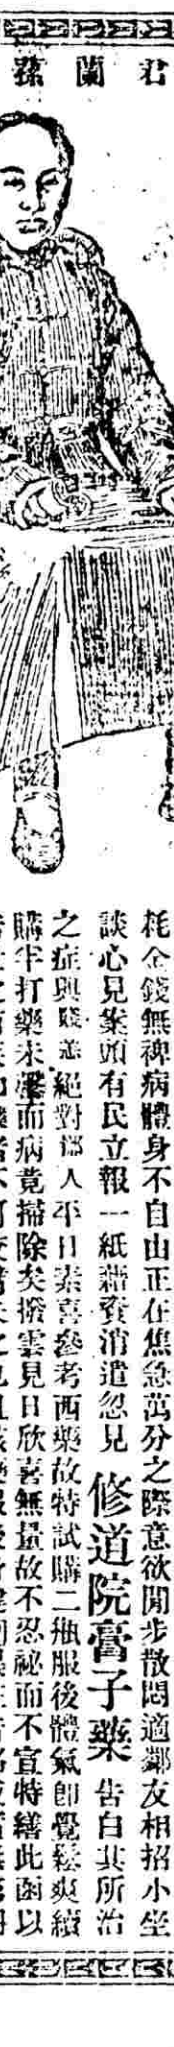 君蘭蓀
耗金錢無裨病體身不自由正在焦急萬分之際意欲閒步散悶適鄰友相招小坐
談心見案頭有民立報一紙藉資消遣忽見修道院膏子藥告白其所治
之症與賤恙絕對鄙人平日素喜參考西藥故特試購二瓶服後體氣即覺鬆爽續
購半打藥未罄而病竟掃除矣撥雲見日欣喜無量故不忍祕而不宣特繕此函以